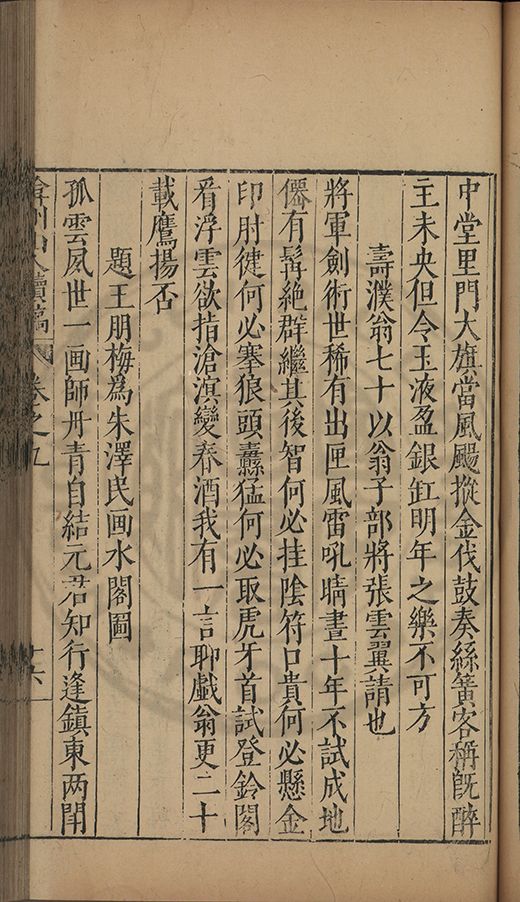 中堂里門大旗當風颺摐金伐鼓奏絲簧客稱既醉
主未央但令玉液盈銀缸明年之樂不可方
壽濮翁七十以翁子部將張雲翼請也
將軍劍術世稀有出匣風雷吼晴晝十年不試成地
僊有髯絶群繼其後智何必挂陰符口貴何必懸金
印肘徤何必搴狼頭纛猛何必取虎牙首試登鈴閣
看浮雲欲指滄溟變春酒我有一言聊戲翁更二十
載鷹揚否
題王朋梅爲朱澤民画水閣圖
孤雲夙世一画師丹青自結元君知行逢鎮東两閈
山人續稿 卷之五